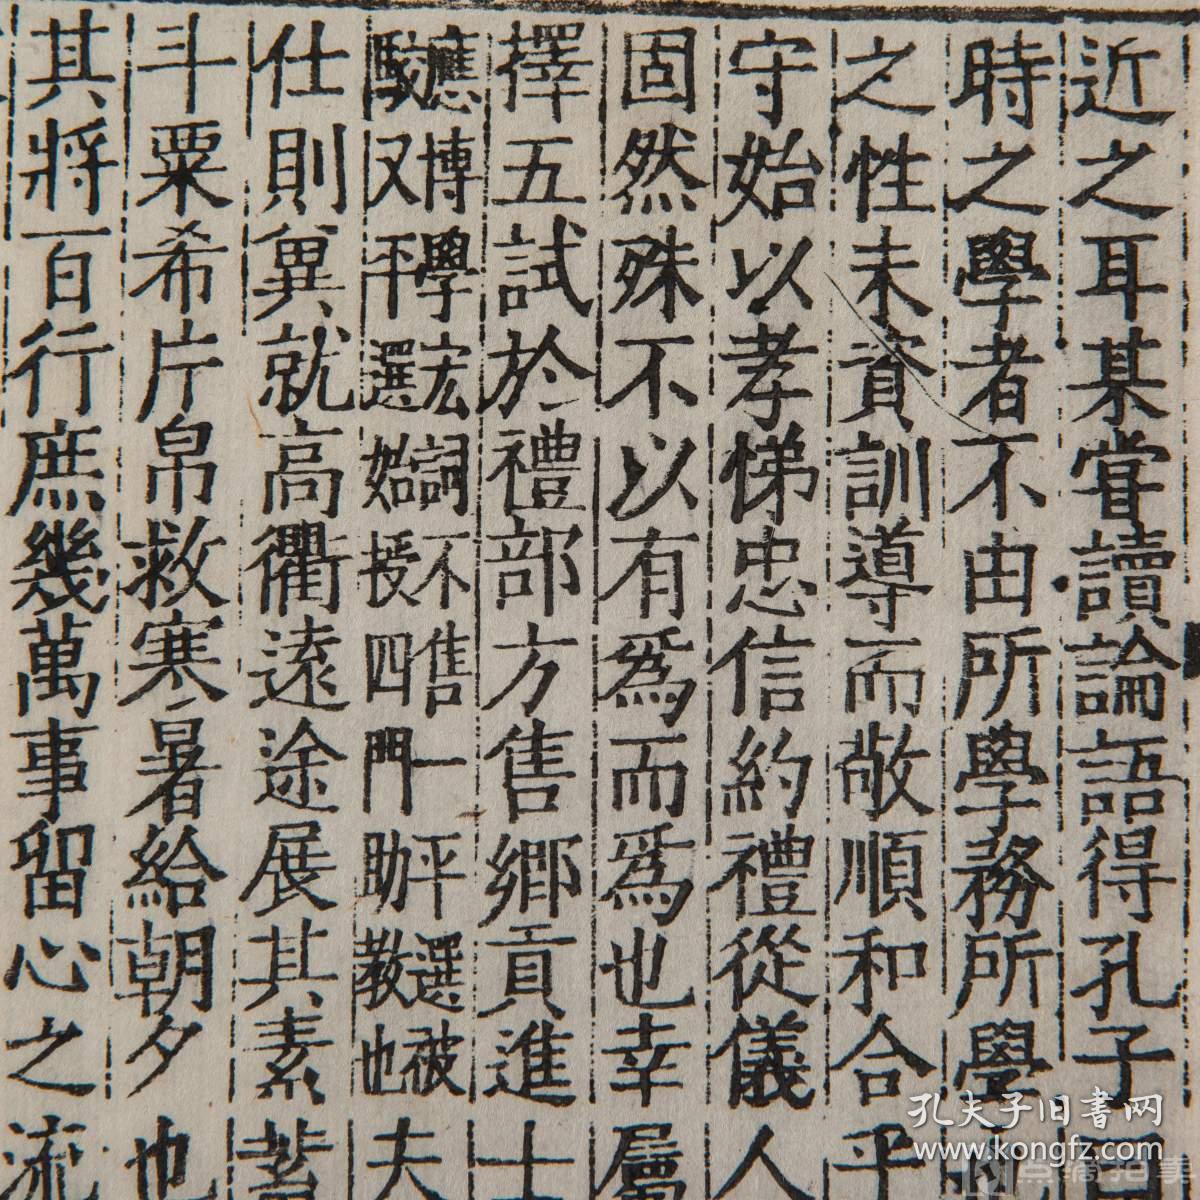 近之耳某嘗讀論語得孔子
時之學者不由所學務所學
之性未資訓導而敬順和合乎
守始以孝悌忠信約禮從儀人
固然殊不以有為而為也幸屬
擇五試於禮部方售鄉貢進士
應博學宏詞不售一平選被
駮又平選始授四門助教也夫
仕則異就高衢遠途展其素蓄
斗粟希片帛救寒暑給朝夕也
其將百行庶幾萬事留心之流
孔夫子旧书网
www.kongfz.com
点滴拍卖